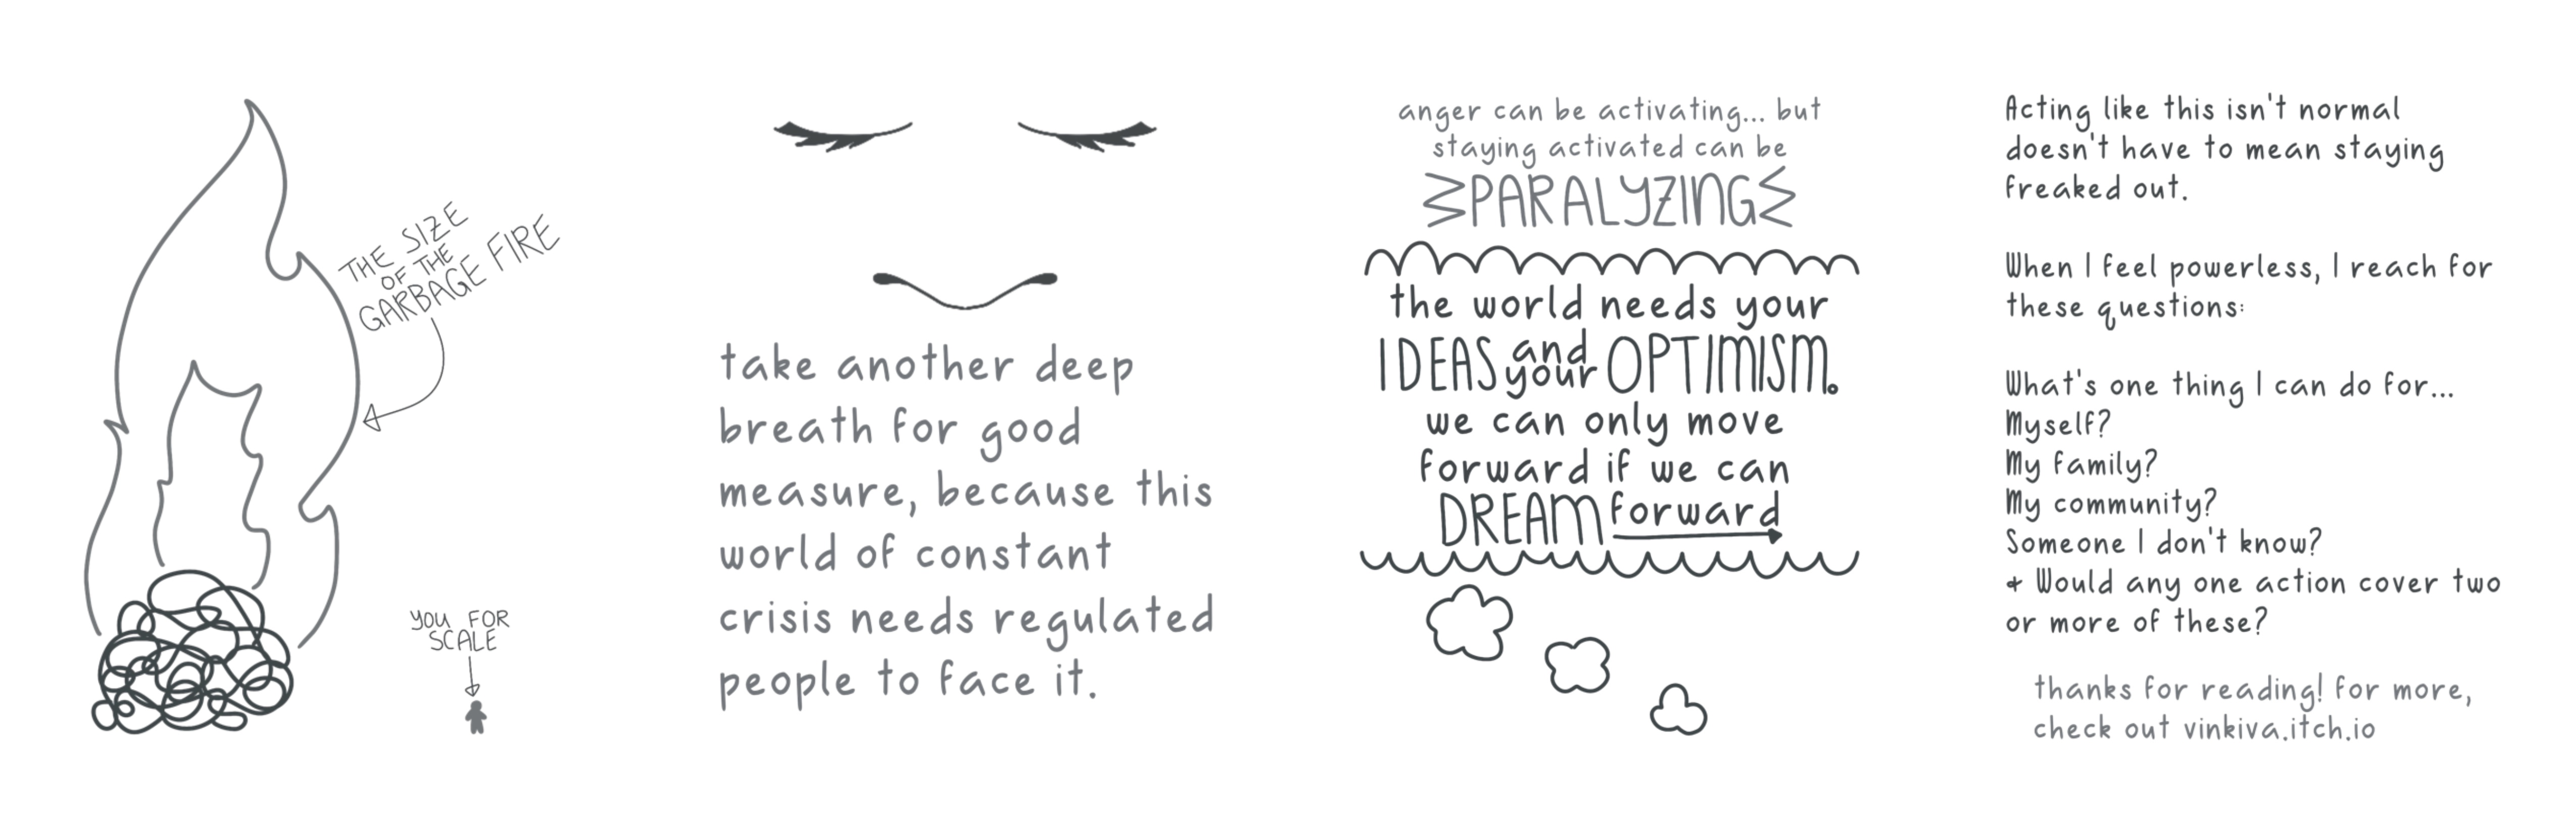 THE SIZE
OF THE
GARBAGE FIRE
YOU FOR
SCALE
take another deep
breath for good
measure, because this
world of constant
crisis needs regulated
people to face it.
anger can be activating... but
staying activated can be
PARALYZING
the world needs your
IDEAS and your OPTIMISM.
we can only move
forward if we can
DREAM forward
Acting like this isn't normal
doesn't have to mean staying
freaked out.
When I feel powerless, I reach for
these questions:
What's one thing I can do for...
Myself?
My family?
My community?
Someone I don't know?
+ Would any one action cover two
or more of these?
thanks for reading! for more,
check out vinkiva.itch.io